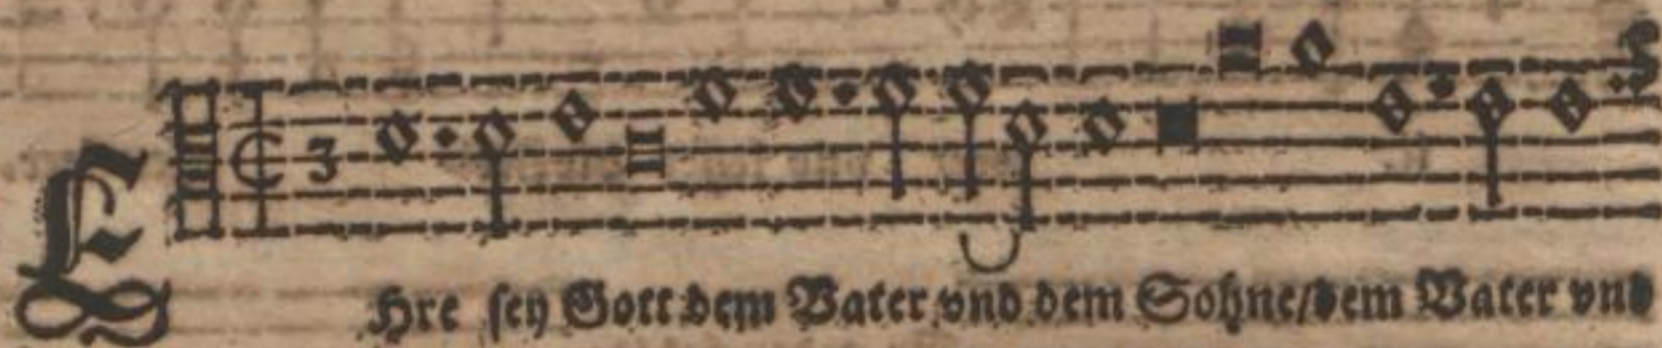 EHre sey Gott dem Vater vnd dem Sohne/dem Vater vnd